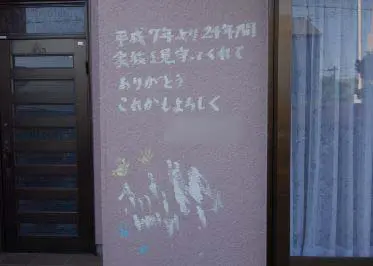 平成7年より24年間
家族を見守ってくれて
ありがとう
これからもよろしく